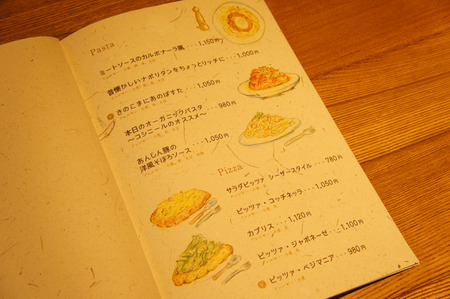 Pasta
ミートソースのカルボナーラ風・・・1,150円
昔懐かしいナポリタンをちょっとリッチに・・・1,000円
きのこまにあのぱすた・・・1,050円
本日のオーガニックパスタ・・・980円
〜コシニールのオススメ〜
あんしん豚の
洋風そぼろソース・・・1,050円
Pizza
サラダピッツァ シーザースタイル・・・780円
ピッツァ・コッチネッラ・・・1,050円
カプリス・・・1,120円
ピッツァ・ジャポネーゼ・・・1,100円
ピッツァ・ベジマニア・・・980円